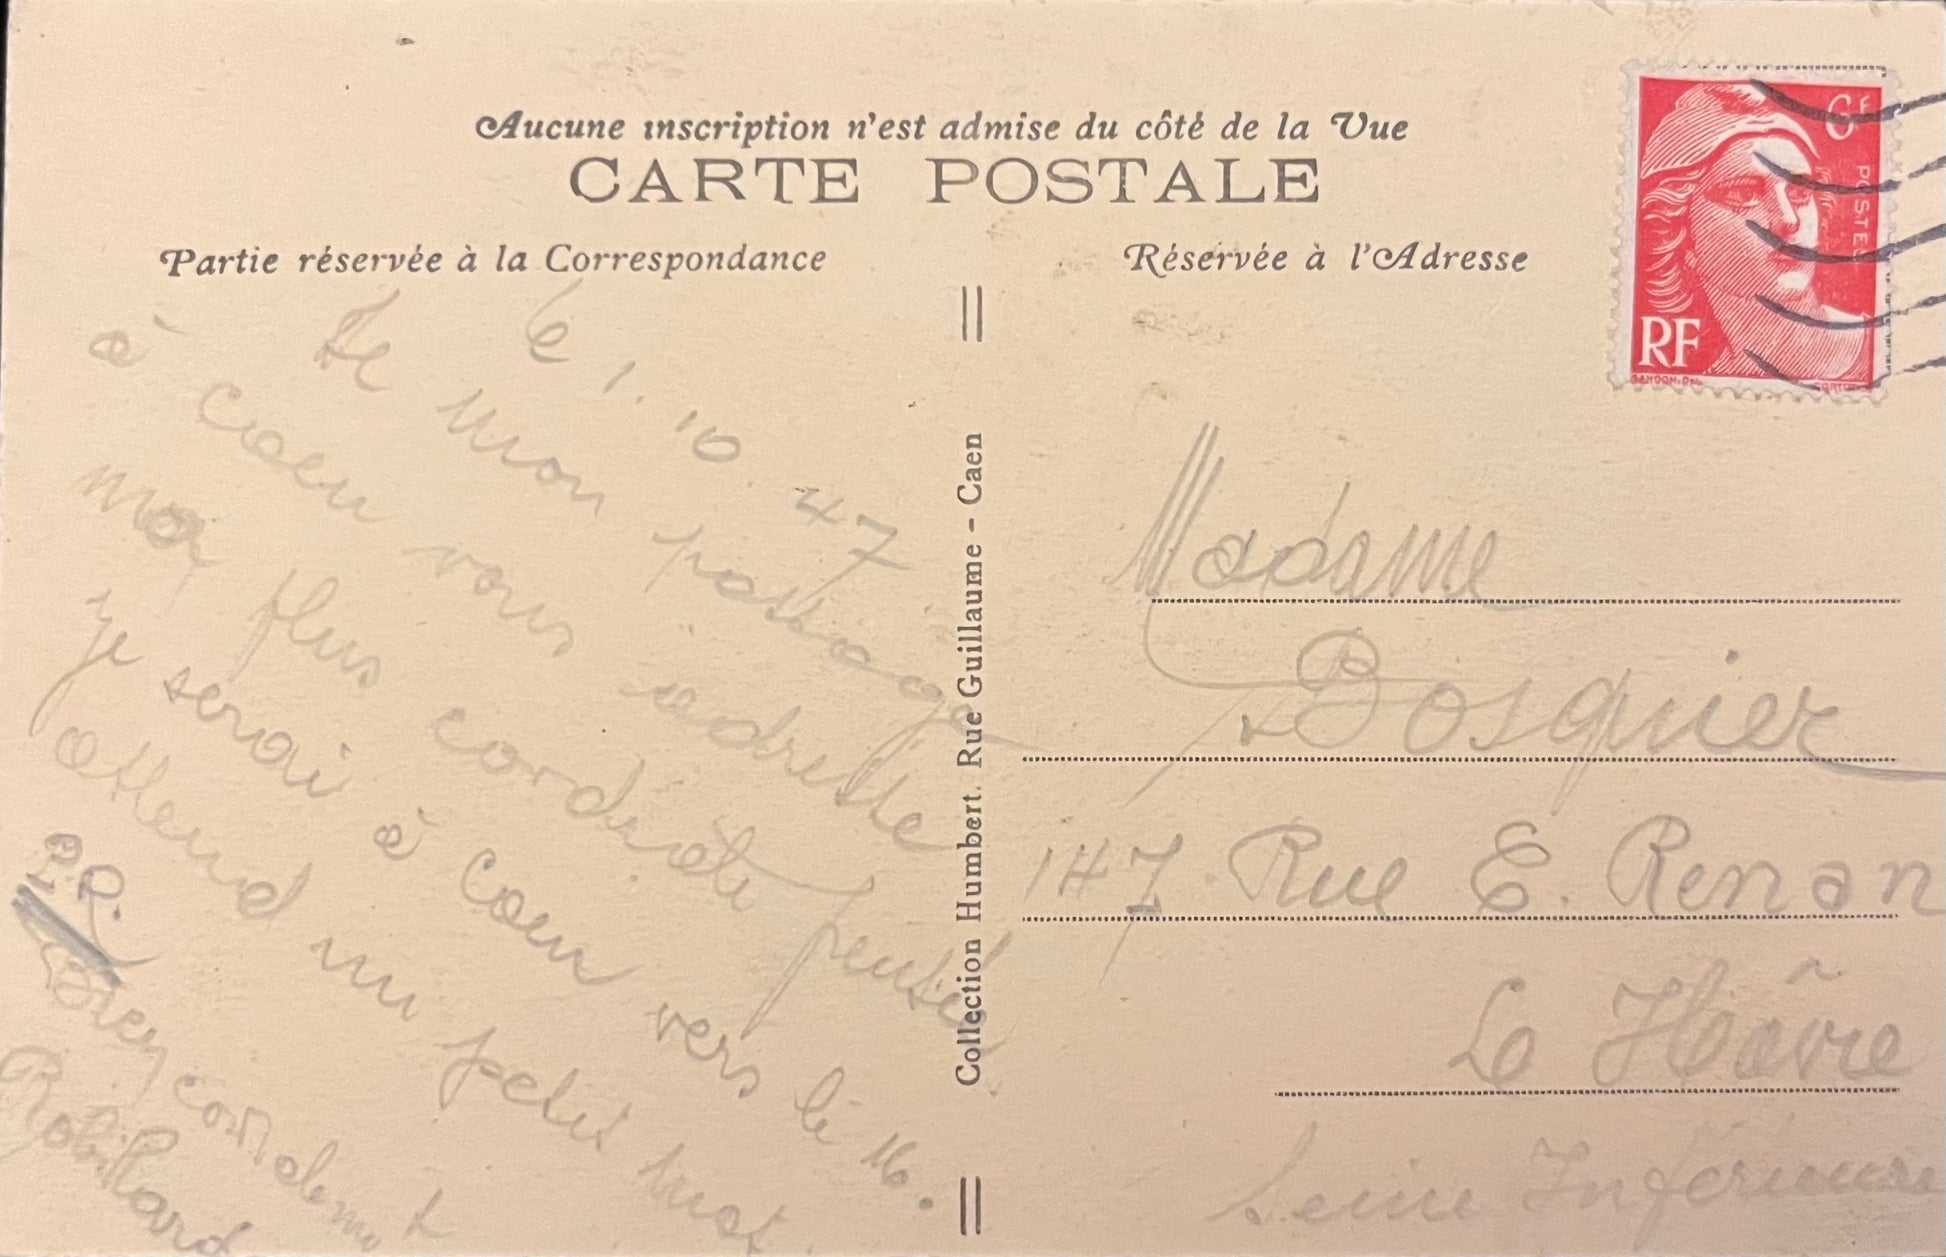 Aucune inscription n'est admise du côté de la Vue
CARTE POSTALE
Partie réservée à la Correspondance
Réservée à l'Adresse
6F
POSTES
RF
le 1.10.47
De mon passage
à Caen vous adresse
ma plus cordiale pensée
je serai à Caen vers le 16.
attend un petit mot
P.R.
cordialement
Robillard
Collection Humbert. Rue Guillaume - Caen
Madame
Bosquier
147 Rue E. Renan
Le Hâvre
Seine Inférieure